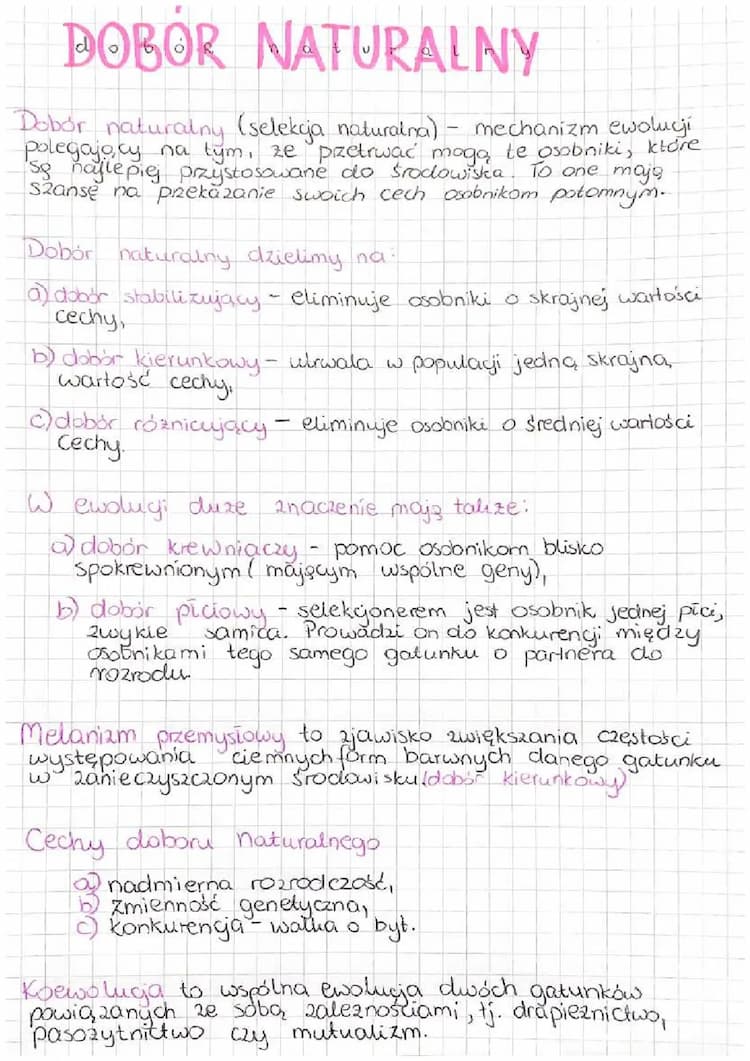 DOBÓR NATURALNY
Dobór naturalny (selekcja naturalna) - mechanizm ewolucji
polegający na tym, że przetrwać mogą te osobniki, które
są najlepiej przystosowane do środowiska. To one mają
szansę na przekazanie swoich cech osobnikom potomnym.
Dobór naturalny dzielimy na:
a) dobór stabilizujący - eliminuje osobniki o skrajnej wartości
cechy,
b) dobór kierunkowy - utrwala w populacji jedną skrajną
wartość cechy,
c) dobór różnicujący - eliminuje osobniki o średniej wartości
cechy.
W ewolucji duże znaczenie mają także:
a) dobór krewniaczy - pomoc osobnikom blisko
spokrewnionym (mającym wspólne geny),
b) dobór płciowy - selekcjonerem jest osobnik jednej płci,
zwykle samica. Prowadzi on do konkurencji między
osobnikami tego samego gatunku o partnera do
rozrodu.
Melanizm przemysłowy to zjawisko zwiększania częstości
występowania ciemnych form barwnych danego gatunku
w zanieczyszczonym środowisku (dobór kierunkowy)
Cechy doboru naturalnego
a) nadmierna rozrodczość,
b) zmienność genetyczna,
c) konkurencja - walka o byt.
Koewolucja to wspólna ewolucja dwóch gatunków
powiązanych ze sobą zależnościami, tj. drapieżnictwo,
pasożytnictwo czy mutualizm.